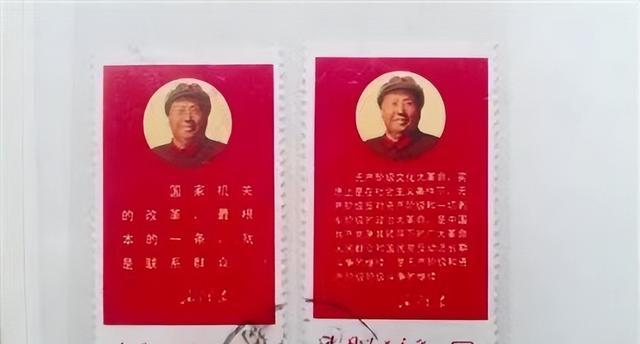 国家机关
的改革，最根
本的一条，就
是联系群众
无产阶级文化大革命，实
质上是在社会主义条件下，无
产阶级反对资产阶级和一切剥
削阶级的政治大革命，是中国
共产党及其领导下的广大革命
人民群众和国民党反动派长期
斗争的继续，是无产阶级和资
产阶级阶级斗争的继续